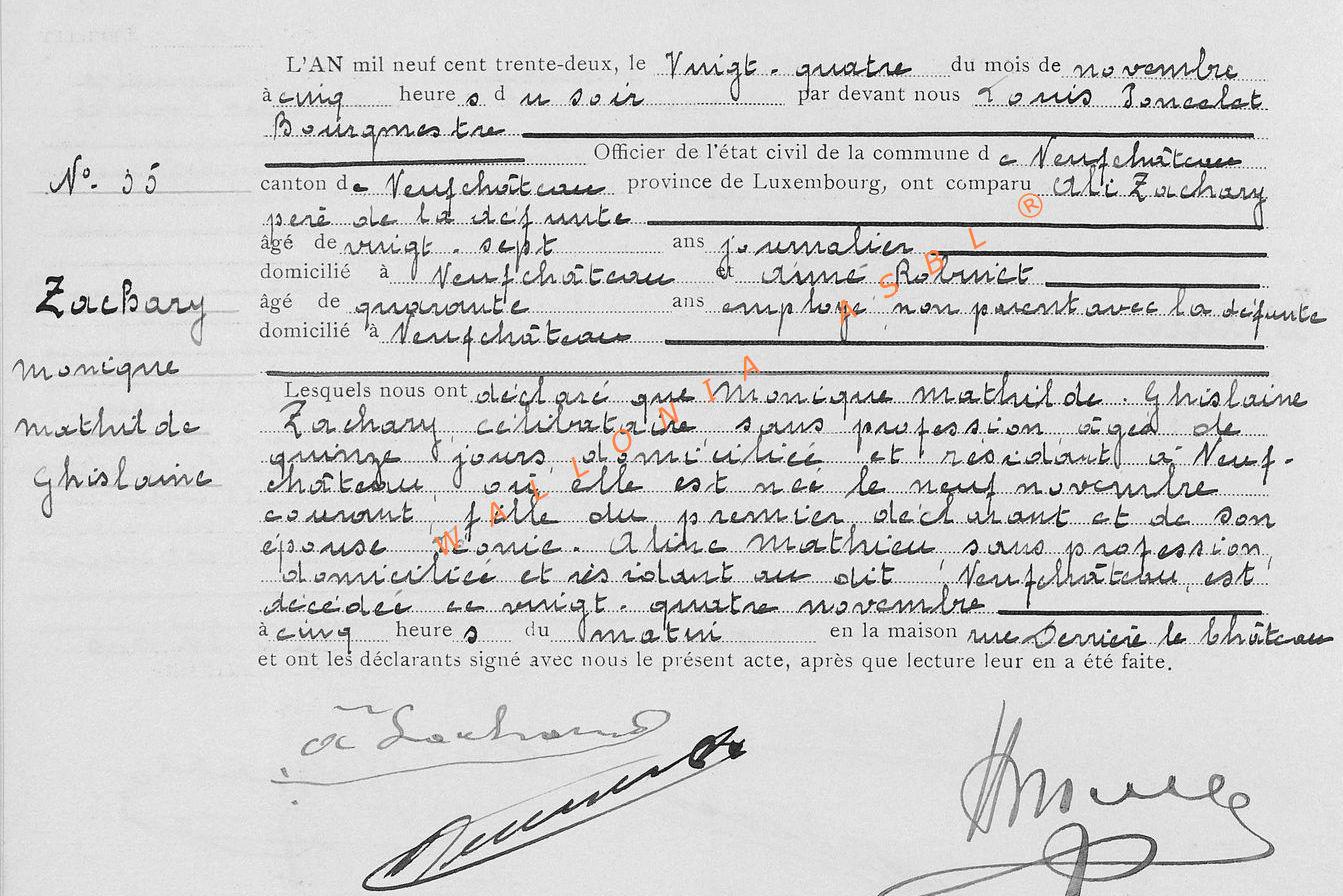 L'AN mil neuf cent trente-deux, le Vingt-quatre du mois de novembre
à cinq heures du soir par devant nous Louis Poncelet
Bourgmestre
Officier de l'état civil de la commune de Neufchâteau
N° 35
canton de Neufchâteau province de Luxembourg, ont comparu Ali Zachary
père de la défunte
âgé de vingt-sept ans journalier
domicilié à Neufchâteau et Aimé
âgé de quarante ans employé non parent avec la défunte
domicilié à Neufchâteau
Zachary
monique
mathilde
Ghislaine
Lesquels nous ont déclaré que Monique mathilde. Ghislaine
Zachary, célibataire sans profession, âgée de
quinze jours, domiciliée et résidant à Neuf-
château, où elle est née le neuf novembre
courant, fille du premier déclarant et de son
épouse Léonie. Aline Mathieu sans profession,
domiciliée et résidant au dit Neufchâteau, est
décédée ce vingt-quatre novembre
à cinq heures du matin en la maison rue Derrière le Château
et ont les déclarants signé avec nous le présent acte, après que lecture leur en a été faite.
WALLONIA ASBL ®